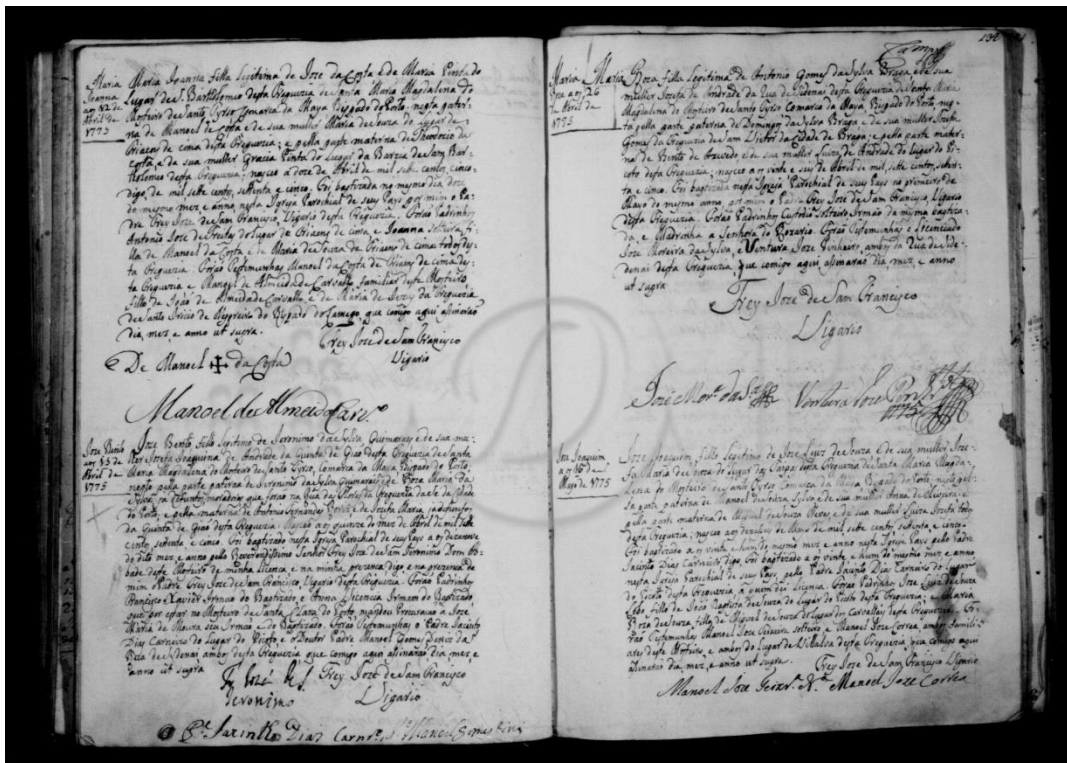 Maria Joanna aos 12 de Abril de 1775
Maria Joanna filha legitima de Joze da Costa e de Maria Pinta do
Lugar de S. Bartholomeo desta Freguezia de Santa Maria Magdalena do
Mosteiro de Santo Tyrso Comarca da Maya Bispado do Porto, nepta pater-
na de Manoel da Costa e de sua mulher Maria de Souza do Lugar de
de cima desta Freguezia; e pella parte materna de Theodozio da
Costa, e de sua mulher Gracia Pinta do Lugar da Varzia de Sam Bar-
tholomeo desta Freguezia; nasceo a doze de Abril de mil, sette centos, cinco,
digo, de mil, sette centos, settenta e cinco. Foi baptizada no mesmo dia doze
do mesmo mez, e anno nesta Igreja Parochial de seus Pays por mim o Pa-
dre Frey Joze de Sam Francisco, Vigario desta Freguezia. Forão Padrinhos
Antonio Joze de Freytas do Lugar de de cima, e Joanna solteira fi-
lha de Manoel da Costa, e de Maria de Souza de de cima todos des-
ta Freguezia. Forão Testemunhas Manoel da Costa de de cima des-
ta Freguezia e Manoel de Almeida de Carvalho familiar deste Mosteiro,
filho de João de Almeida de Carvalho, e de Maria de da Freguezia
de Santo do Bispado de Lamego, que comigo aqui assinarão
dia, mez, e anno ut supra.
Frey Joze de Sam Francisco
Vigario
De Manoel + da Costa
Manoel de Almeida Carv.º
Joze Bento aos 15 de Abril de 1775
Joze Bento, filho legitimo de Jeronimo da Sylva Guimarays e de sua mu-
lher Josefa Joaquina de Andrade da Quinta de Gião desta Freguezia de Santa
Maria Magdalena do Mosteiro de Santo Tyrso, Comarca da Maya Bispado do Porto;
nepto pella parte paterna de Jeronimo da Sylva Guimarays, e de Roza Maria da
Sylva, ja defuntos, moradores que forão na Rua das Flores da Freguezia da Sé da Cidade
do Porto, e pella materna de Antonio Fernandes e de Jozefa Maria, ja defuntos,
da Quinta de Gião desta Freguezia. Nasceo aos quinze do mez de Abril de mil sette
centos, settenta e cinco. Foi baptizado nesta Igreja Parochial de seus Pays a dezanove
do dito mez, e anno pello Reverendissimo Senhor Frey Joze de Sam Jeronimo Dom Ab-
bade deste Mosteiro de minha licença, e na minha prezença digo e na prezença de
mim o Padre Frey Joze de Sam Francisco, Vigario desta Freguezia. Forão Padrinhos
Francisco Xavier Irmão do Baptizado, e Anna Irmam do Baptizado,
que por estar no Mosteiro de Santa Clara do Porto, mandou Procuração a Joze
Maria de Moura seu Irmão e do Baptizado. Forão Testemunhas o Padre Jacinto
Dias Carneiro do Lugar do Picoto, e o Doutor Padre Manoel Gomes Diniz da
Rua de Sidenai ambos desta Freguezia que comigo aqui assinarão dia, mez, e
anno ut supra
Fr. José de S. Jeronimo
Frey Joze de Sam Francisco
Vigario
O P.e Jacintho Dias Carnr.º
P.e Manoel Gomes Diniz
138
Maria Roza aos 26 de Abril de 1775
Maria Roza filha legitima de Antonio Gomes da Sylva Braga e de sua
mulher Josefa de Andrade da Rua de Sidenai desta Freguezia de Santa Maria
Magdalena do Mosteiro de Santo Tyrso Comarca da Maya Bispado do Porto, nep-
ta pella parte paterna de Domingos da Sylva Braga e de sua mulher Josefa
Gomes da Freguezia de Sam Victor da Cidade de Braga; e pella parte mater-
na de Bento de Azevedo, e de sua mulher Luiza de Andrade do lugar do Pi-
coto desta Freguezia; nasceo aos vinte e seis de Abril de mil, sette centos, setten-
ta e cinco. Foi baptizada nesta Igreja Parochial de seus Pays no primeiro de
Mayo do mesmo anno, por mim o Padre Frey Joze de Sam Francisco, Vigario
desta Freguezia. Forão Padrinhos Custodio solteiro Irmão da mesma baptiza-
da, e Madrinha a Senhora do Rozario. Forão Testemunhas o Licenciado
Joze Moreira da Sylva, e Ventura Joze Pinheiro, ambos da Rua de Side-
denai desta Freguezia, que comigo aqui assinarão dia, mez, e anno
ut supra
Frey Joze de Sam Francisco
Vigario
José Mor.ª da S.ª
Ventura Joze
Joze Joaquim aos 16 de Mayo de 1775
Joze Joaquim, filho legitimo de Joze Luiz de Souza e de sua mulher Joze-
fa Maria de Souza do Lugar das desta Freguezia de Santa Maria Magda-
lena do Mosteiro de Santo Tyrso Comarca da Maya Bispado do Porto; nepto pel-
la parte paterna de Manoel de Souza Sylva e de sua mulher Anna de Oliveira; e
pella parte materna de Miguel de Souza e de sua mulher Luiza Josefa todos
desta Freguezia; nasceo aos de Mayo de mil, sette centos, settenta e cinco.
Foi baptizado aos vinte e hum do mesmo mez e anno nesta Igreja pello Padre
Jacinto Dias Carneiro digo, foi baptizado aos vinte e hum do mesmo mez e anno
nesta Igreja Parochial de seus Pays, pelo Padre Jacinto Dias Carneiro do Lugar
do Picoto desta Freguezia, a quem dei Licença. Forão Padrinhos Joze Luiz de Souza
Lobo filho de João Baptista de Souza do lugar do Picoto desta Freguezia; e Maria
Roza de Souza filha de Miguel de Souza do Lugar do Carvalhal desta Freguezia. Fo-
rão Testemunhas Manoel Joze Teixeira, solteiro e Manoel Joze Correa, ambos famili-
ares deste Mosteiro, e ambos do Lugar de desta Freguezia que comigo aqui
assinarão dia, mez, e anno ut supra.
Frey Joze de Sam Francisco Vigario
Manoel Joze Teixr.ª
Manoel Joze Correa